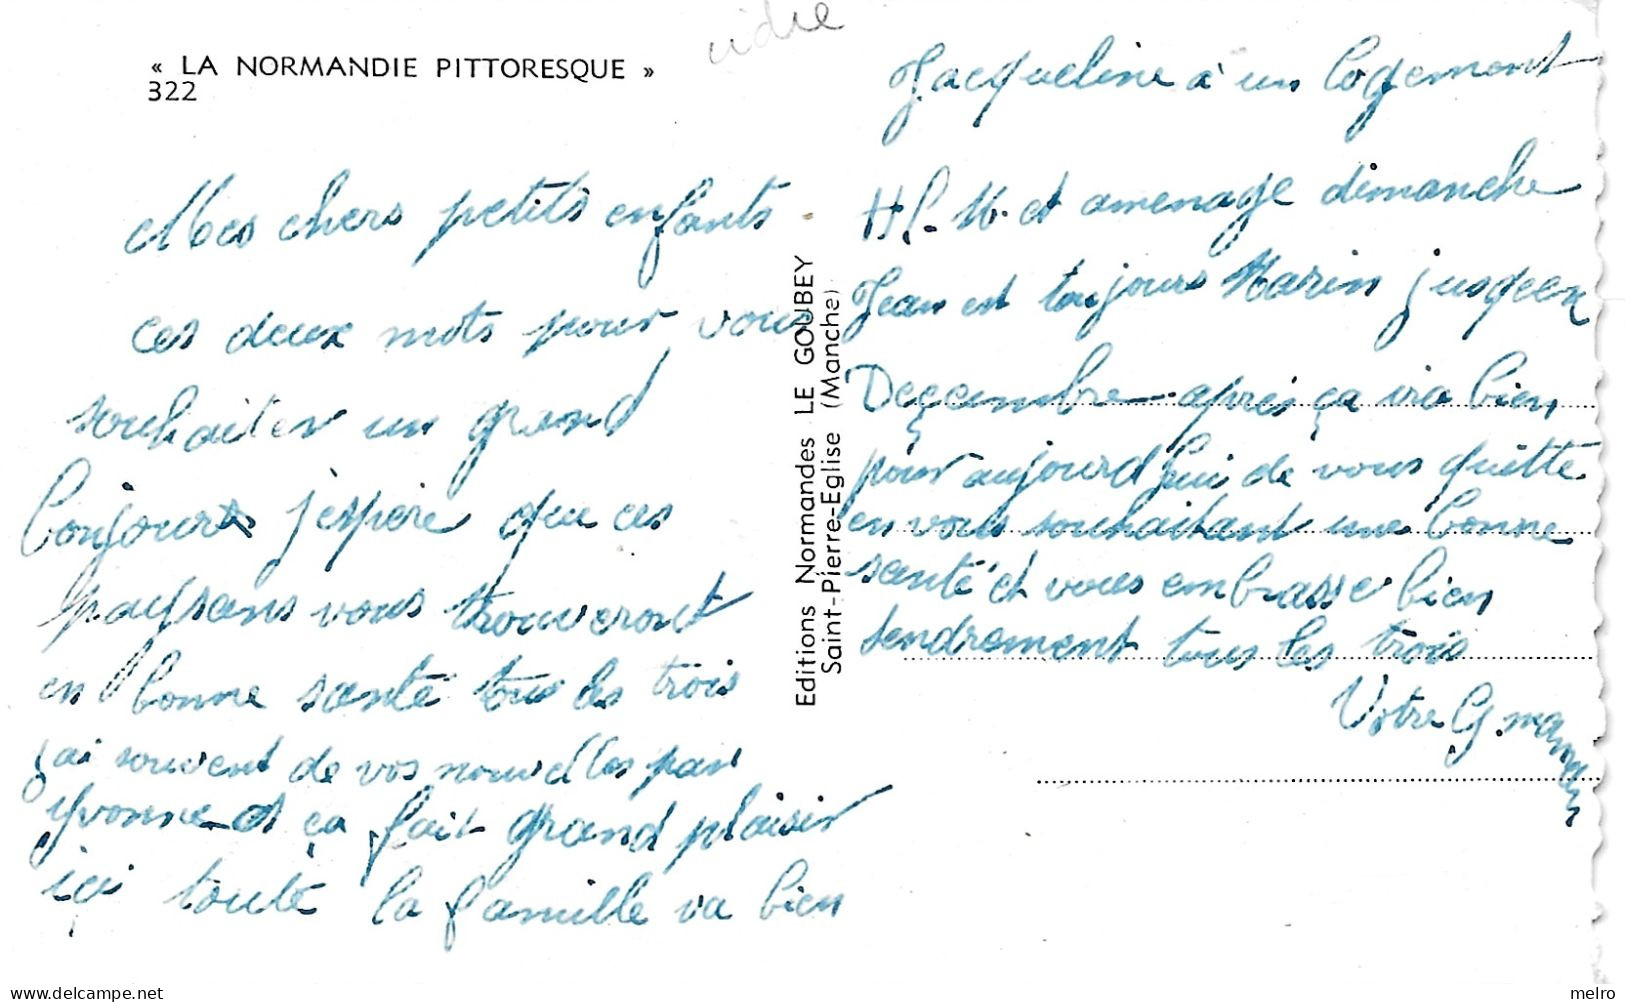 cidre
« LA NORMANDIE PITTORESQUE »
322
Mes chers petits enfants
ces deux mots pour vous
souhaiter un grand
bonjour j'espère que ces
paysans vous trouveront
en bonne santé tous les trois
j'ai souvent de vos nouvelles par
Yvonne et ça fait grand plaisir
içi toute la famille va bien
Editions Normandes LE GOUBEY
Saint-Pierre-Eglise (Manche)
Jacqueline à un logement
H.L.M. et amenage dimanche
Jean est toujours Marin jusqueen
Deçcembre après ça ira bien
pour aujourd'hui de vous quitte
en vous souhaitant une bonne
santé et vous embrasse bien
tendrement tous les trois
Votre G.maman
delcampe.net
melro